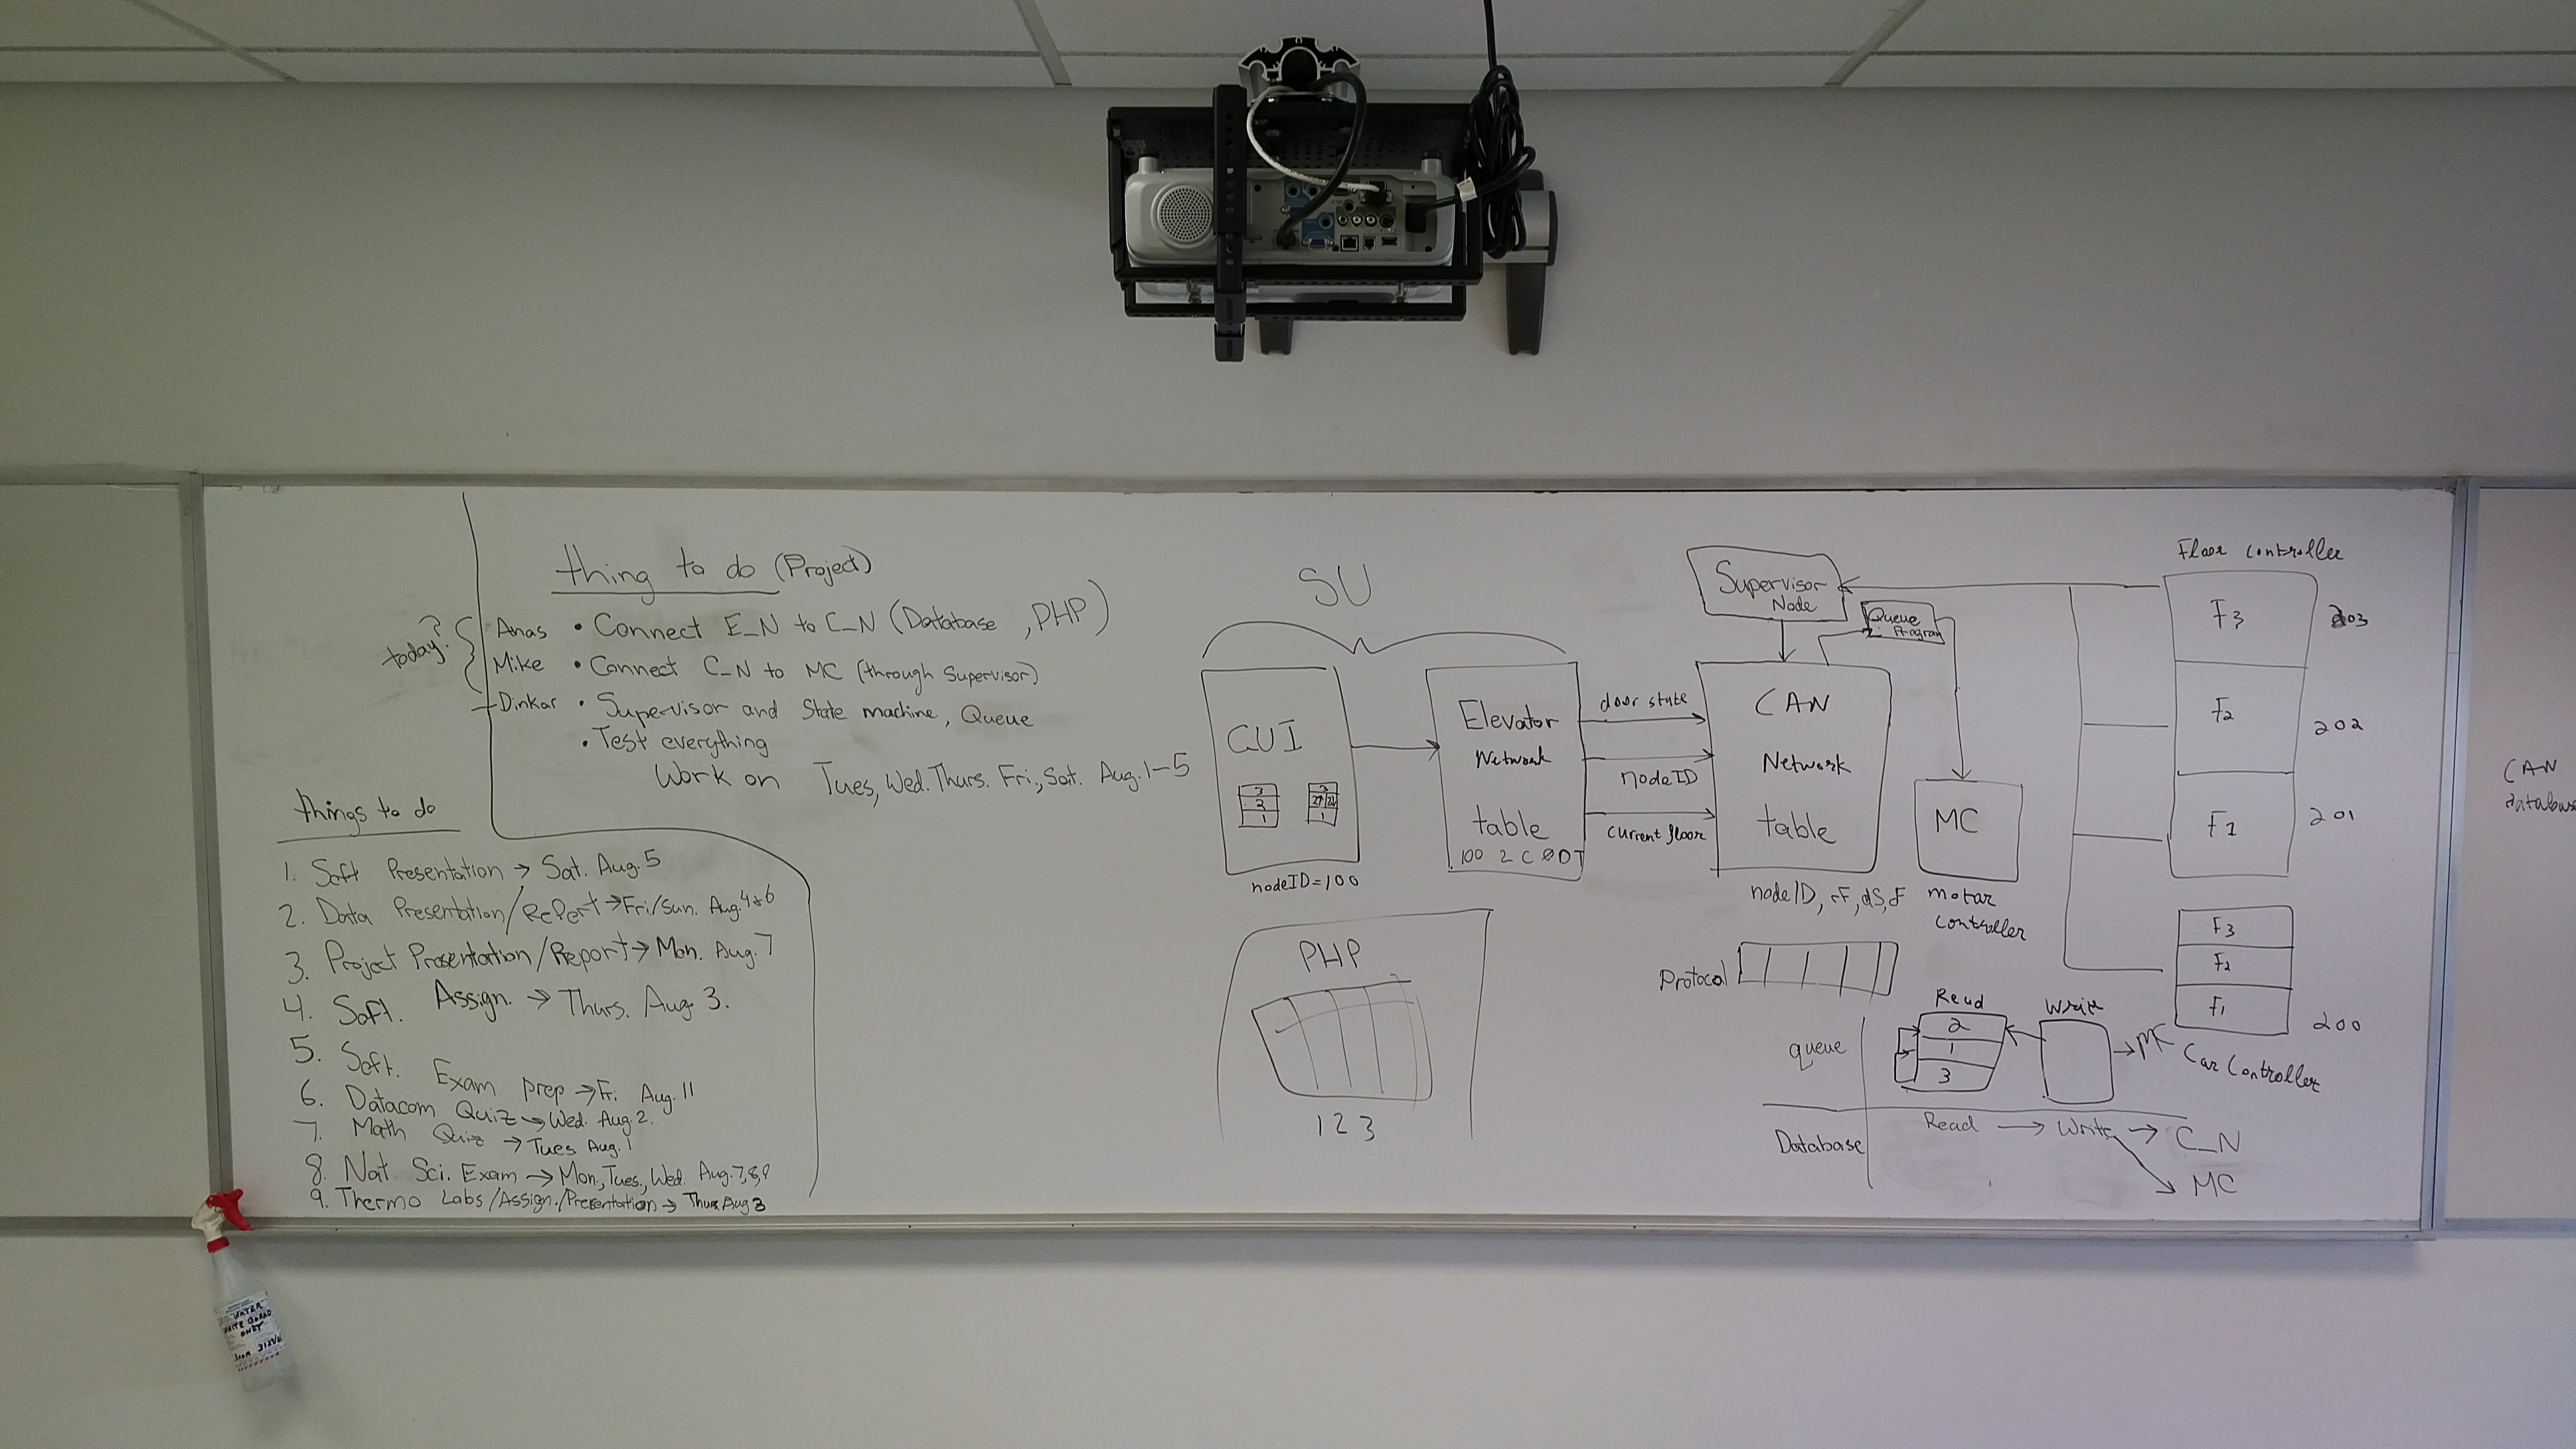 thing to do (Project)
today?
Anas • Connect E_N to C_N (Database, PHP)
Mike • Connect C_N to MC (through Supervisor)
Dinkar • Supervisor and State machine, Queue
• Test everything
Work on Tues, Wed. Thurs. Fri., Sat. Aug. 1-5
things to do
1. Soft Presentation → Sat. Aug. 5
2. Data Presentation/Report → Fri/Sun. Aug. 4&6
3. Project Presentation/Report → Mon. Aug. 7
4. Soft. Assign. → Thurs. Aug. 3.
5. Soft. Exam prep → Fri. Aug. 11
6. Datacom Quiz → Wed. Aug. 2.
7. Math Quiz → Tues Aug. 1
8. Nat. Sci. Exam → Mon., Tues., Wed. Aug. 7,8,9
9. Thermo Labs/Assign./Presentation → Thur. Aug 3
SU
GUI
3
2
1
3
1
nodeID=100
Elevator
Network
table
door state
nodeID
current floor
Supervisor
Node
Queue
Program
CAN
Network
table
nodeID, cF, dS, F
MC
motor
controller
Floor controller
F3 203
F2 202
F1 201
F3
F2
F1
200
Car Controller
PHP
1 2 3
Protocol
queue
Read
2
1
3
Write
→ MC
Database
Read → Write → C_N
MC
CAN
WATER
WHITE BOARD
ONLY